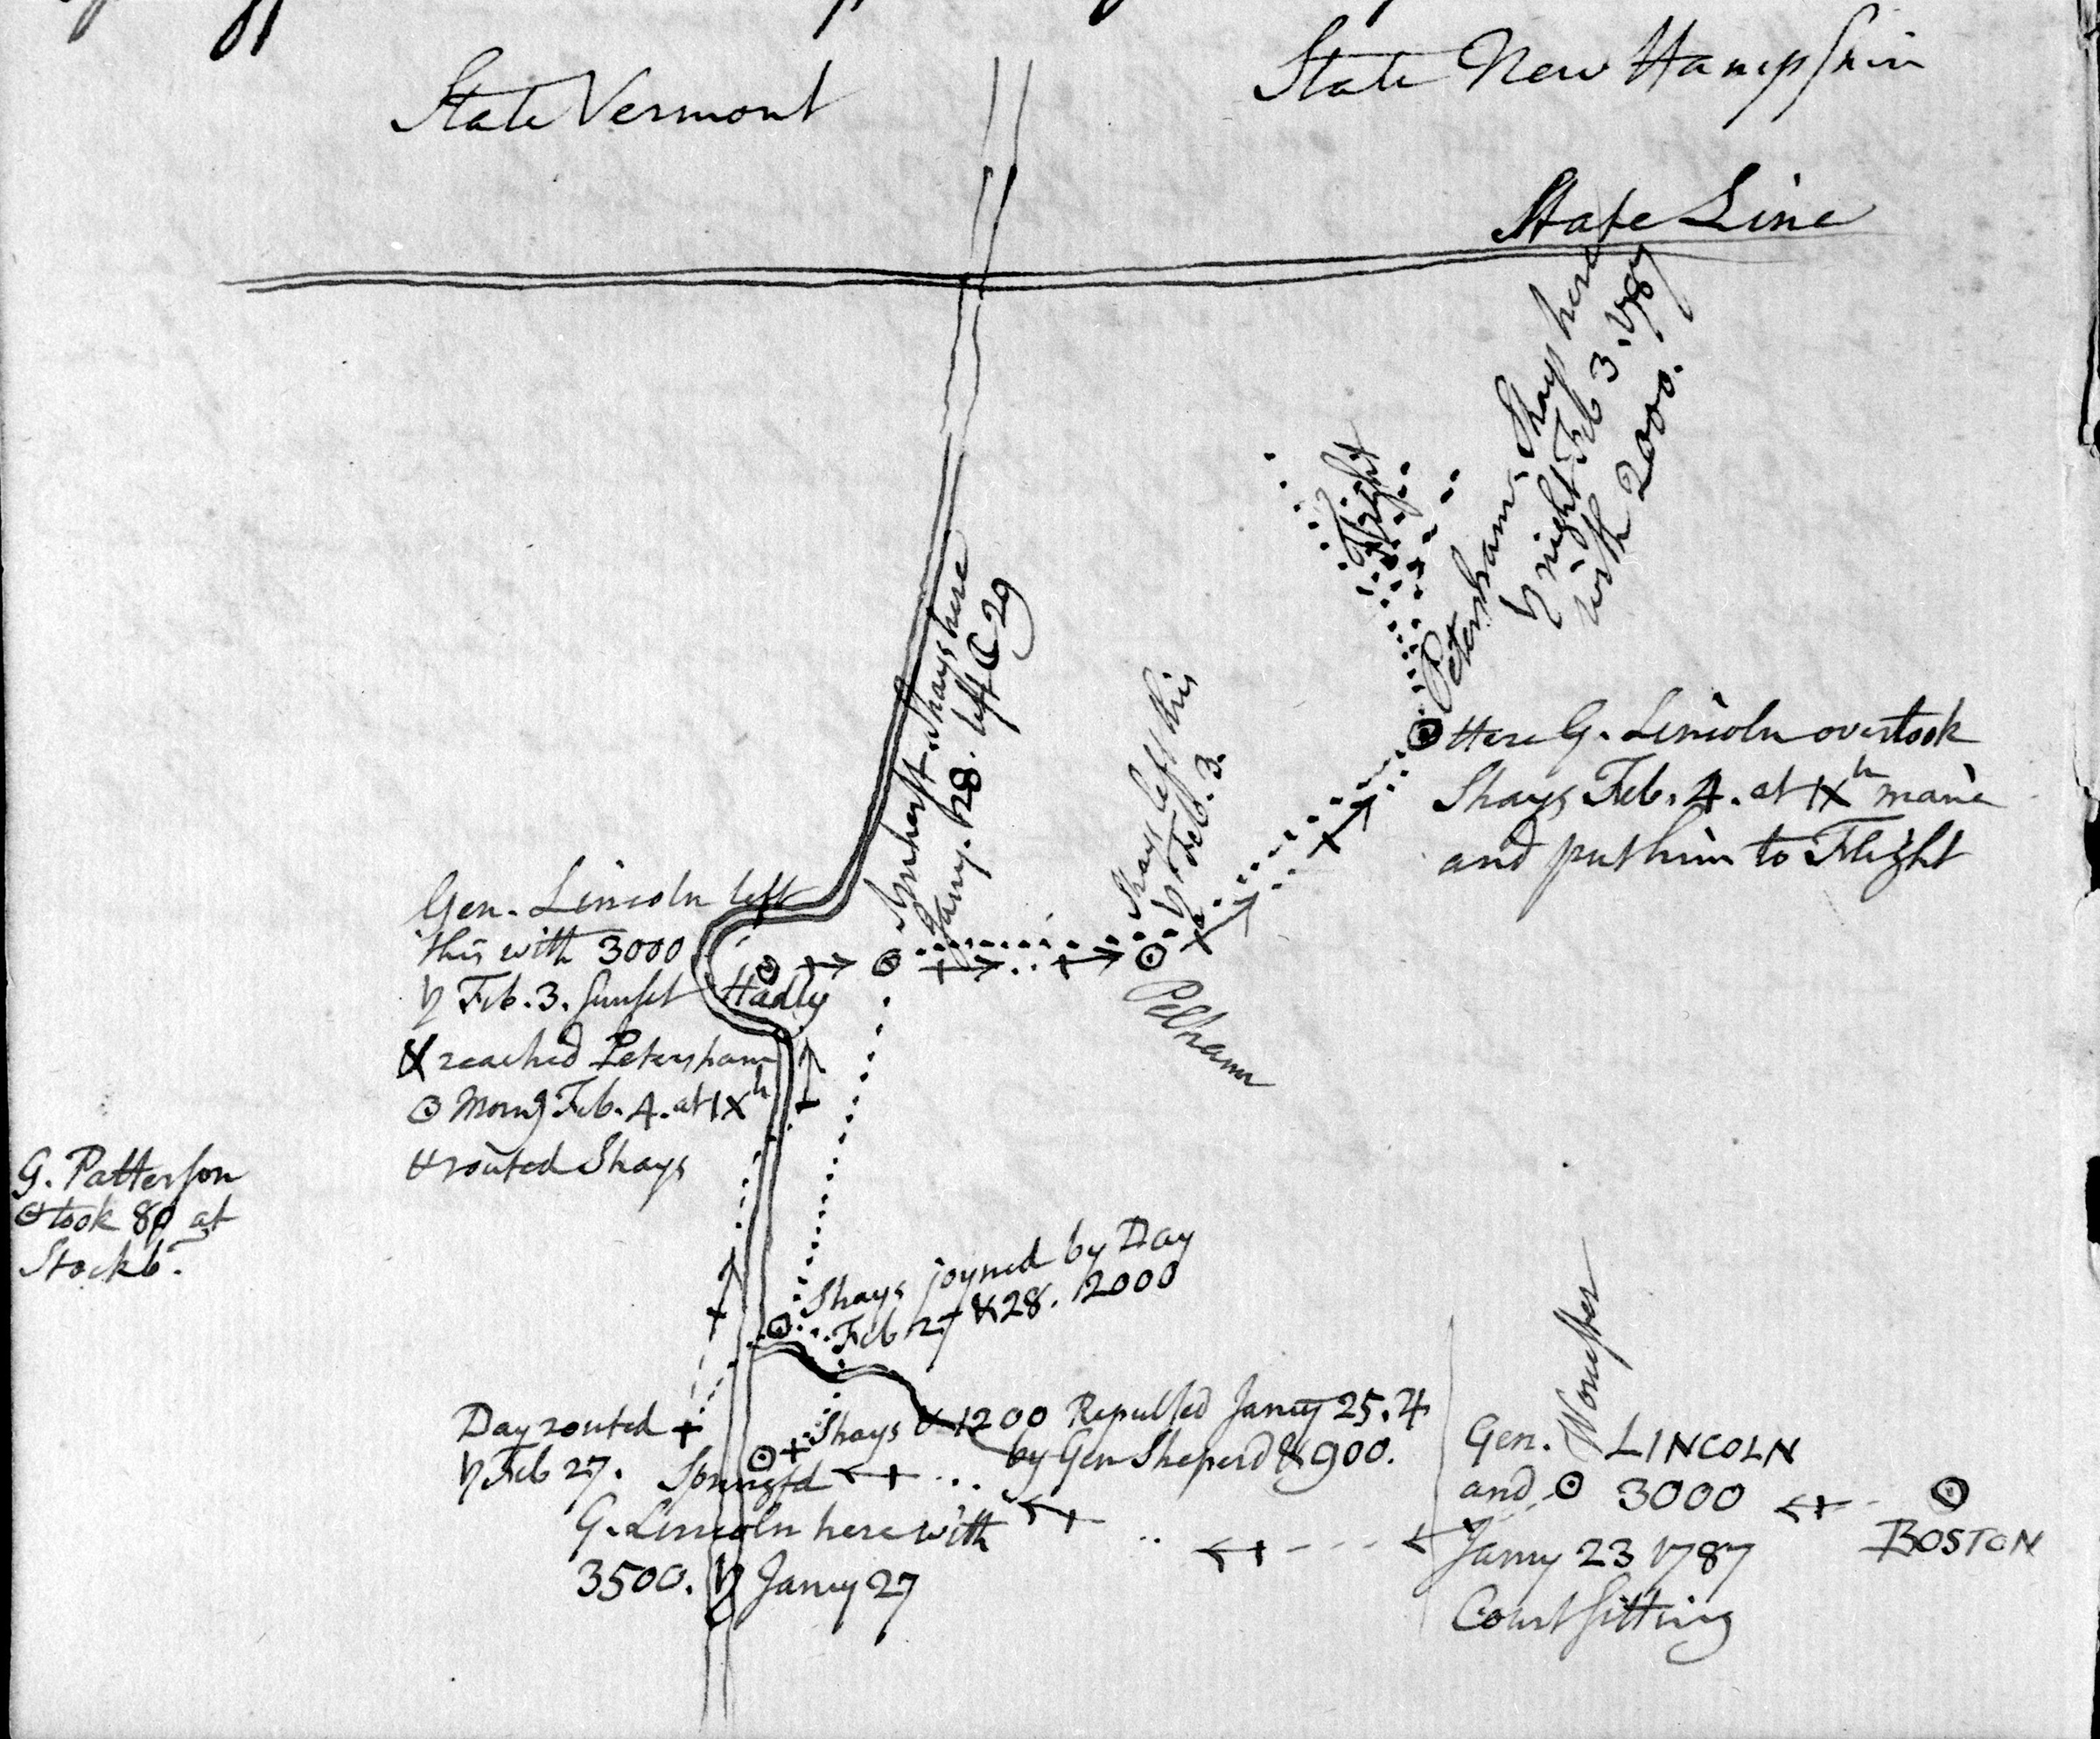 State Vermont
State New Hampshire
State Line
Petersham, Shays here
♄ night Feb 3. 1787
with 2000.
Flight
Amherst Shays here
Jany. 28. left ☾ 29
Shays left this
♄ Feb. 3.
Here G. Lincoln overtook
Shays Feb. 4. at IXh mane
and put him to Flight
Gen. Lincoln left
this with 3000
♄ Feb. 3. Sunset
& reached Petersham
☉ Morng Feb. 4. at IXh
& routed Shays
Hadly
Pelham
G. Patterson
took 80 at
Stockb.
Shays joyned by Day
Feb 27 & 28. 2000
Day routed
♄ Feb 27.
Shays & 1200 Repulsed Janry 25. ♃
by Gen Sheperd & 900.
Springfd
G. Lincoln here with
3500. ♄ Janry 27
Worcester
Gen. LINCOLN
and 3000
Janry 23 1787
Court sitting
BOSTON